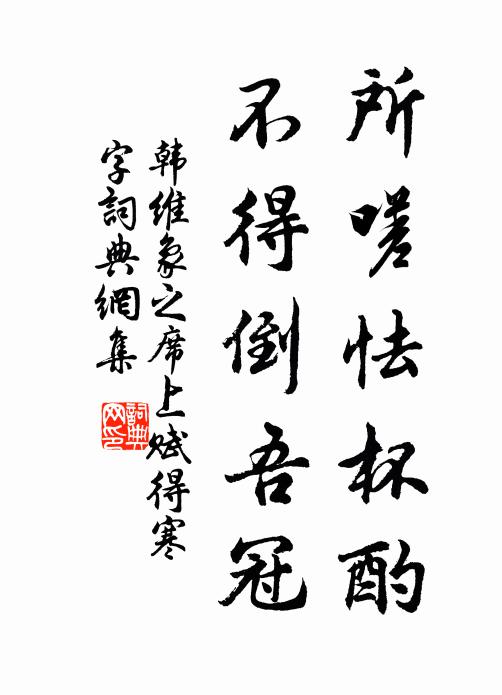 所嗟怯杯酌
不得倒吾冠
韩维象之席上赋得寒
字詞典網集
詞典
网印